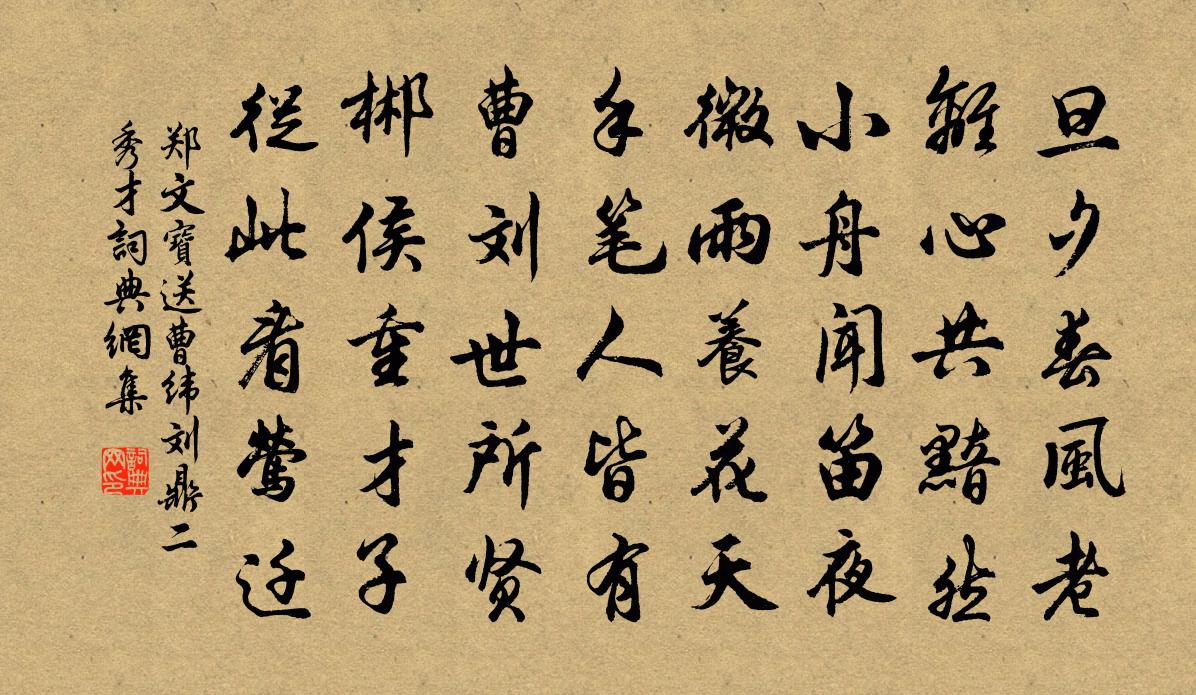 旦夕春風老
離心共黯然
小舟聞笛夜
微雨養花天
手笔人皆有
曹刘世所贤
郴侯重才子
從此看鶯迁
郑文寶送曹纬刘鼎二
秀才詞典網集
詞典网印